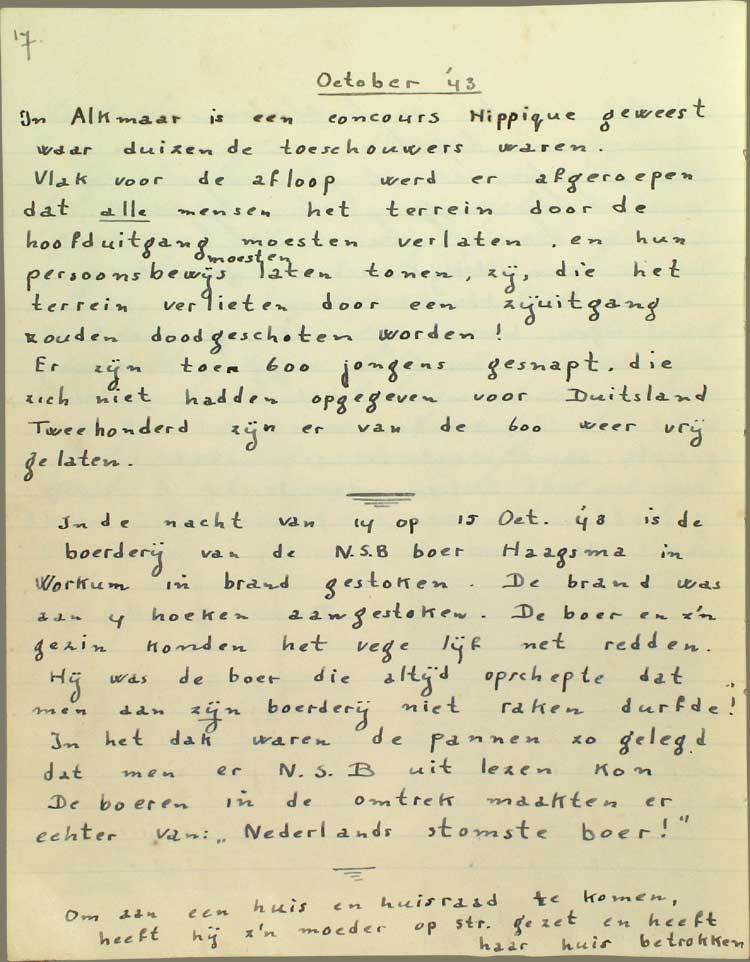 17.
October '43
In Alkmaar is een concours Hippique geweest
waar duizende toeschouwers waren.
Vlak voor de afloop werd er afgeroepen
dat alle mensen het terrein door de
hoofduitgang moesten verlaten, en hun
moesten
persoonsbewijs laten tonen, zij, die het
terrein verlieten door een zijuitgang
zouden doodgeschoten worden!
Er zijn toen 600 jongens gesnapt, die
zich niet hadden opgegeven voor Duitsland
Tweehonderd zijn er van de 600 weer vrij
gelaten.
In de nacht van 14 op 15 Oct. '43 is de
boerderij van de N.S.B boer Haagsma in
Workum in brand gestoken. De brand was
aan 4 hoeken aangestoken. De boer en z'n
gezin konden het vege lijf net redden.
Hij was de boer die altijd opschepte dat
men aan zijn boerderij niet raken durfde!"
In het dak waren de pannen zo gelegd
dat men er N.S.B uit lezen kon
De boeren in de omtrek maakten er
echter van: „Nederlands stomste boer!"
Om aan een huis en huisraad te komen,
heeft hij z'n moeder op str. gezet en heeft
haar huis betrokken